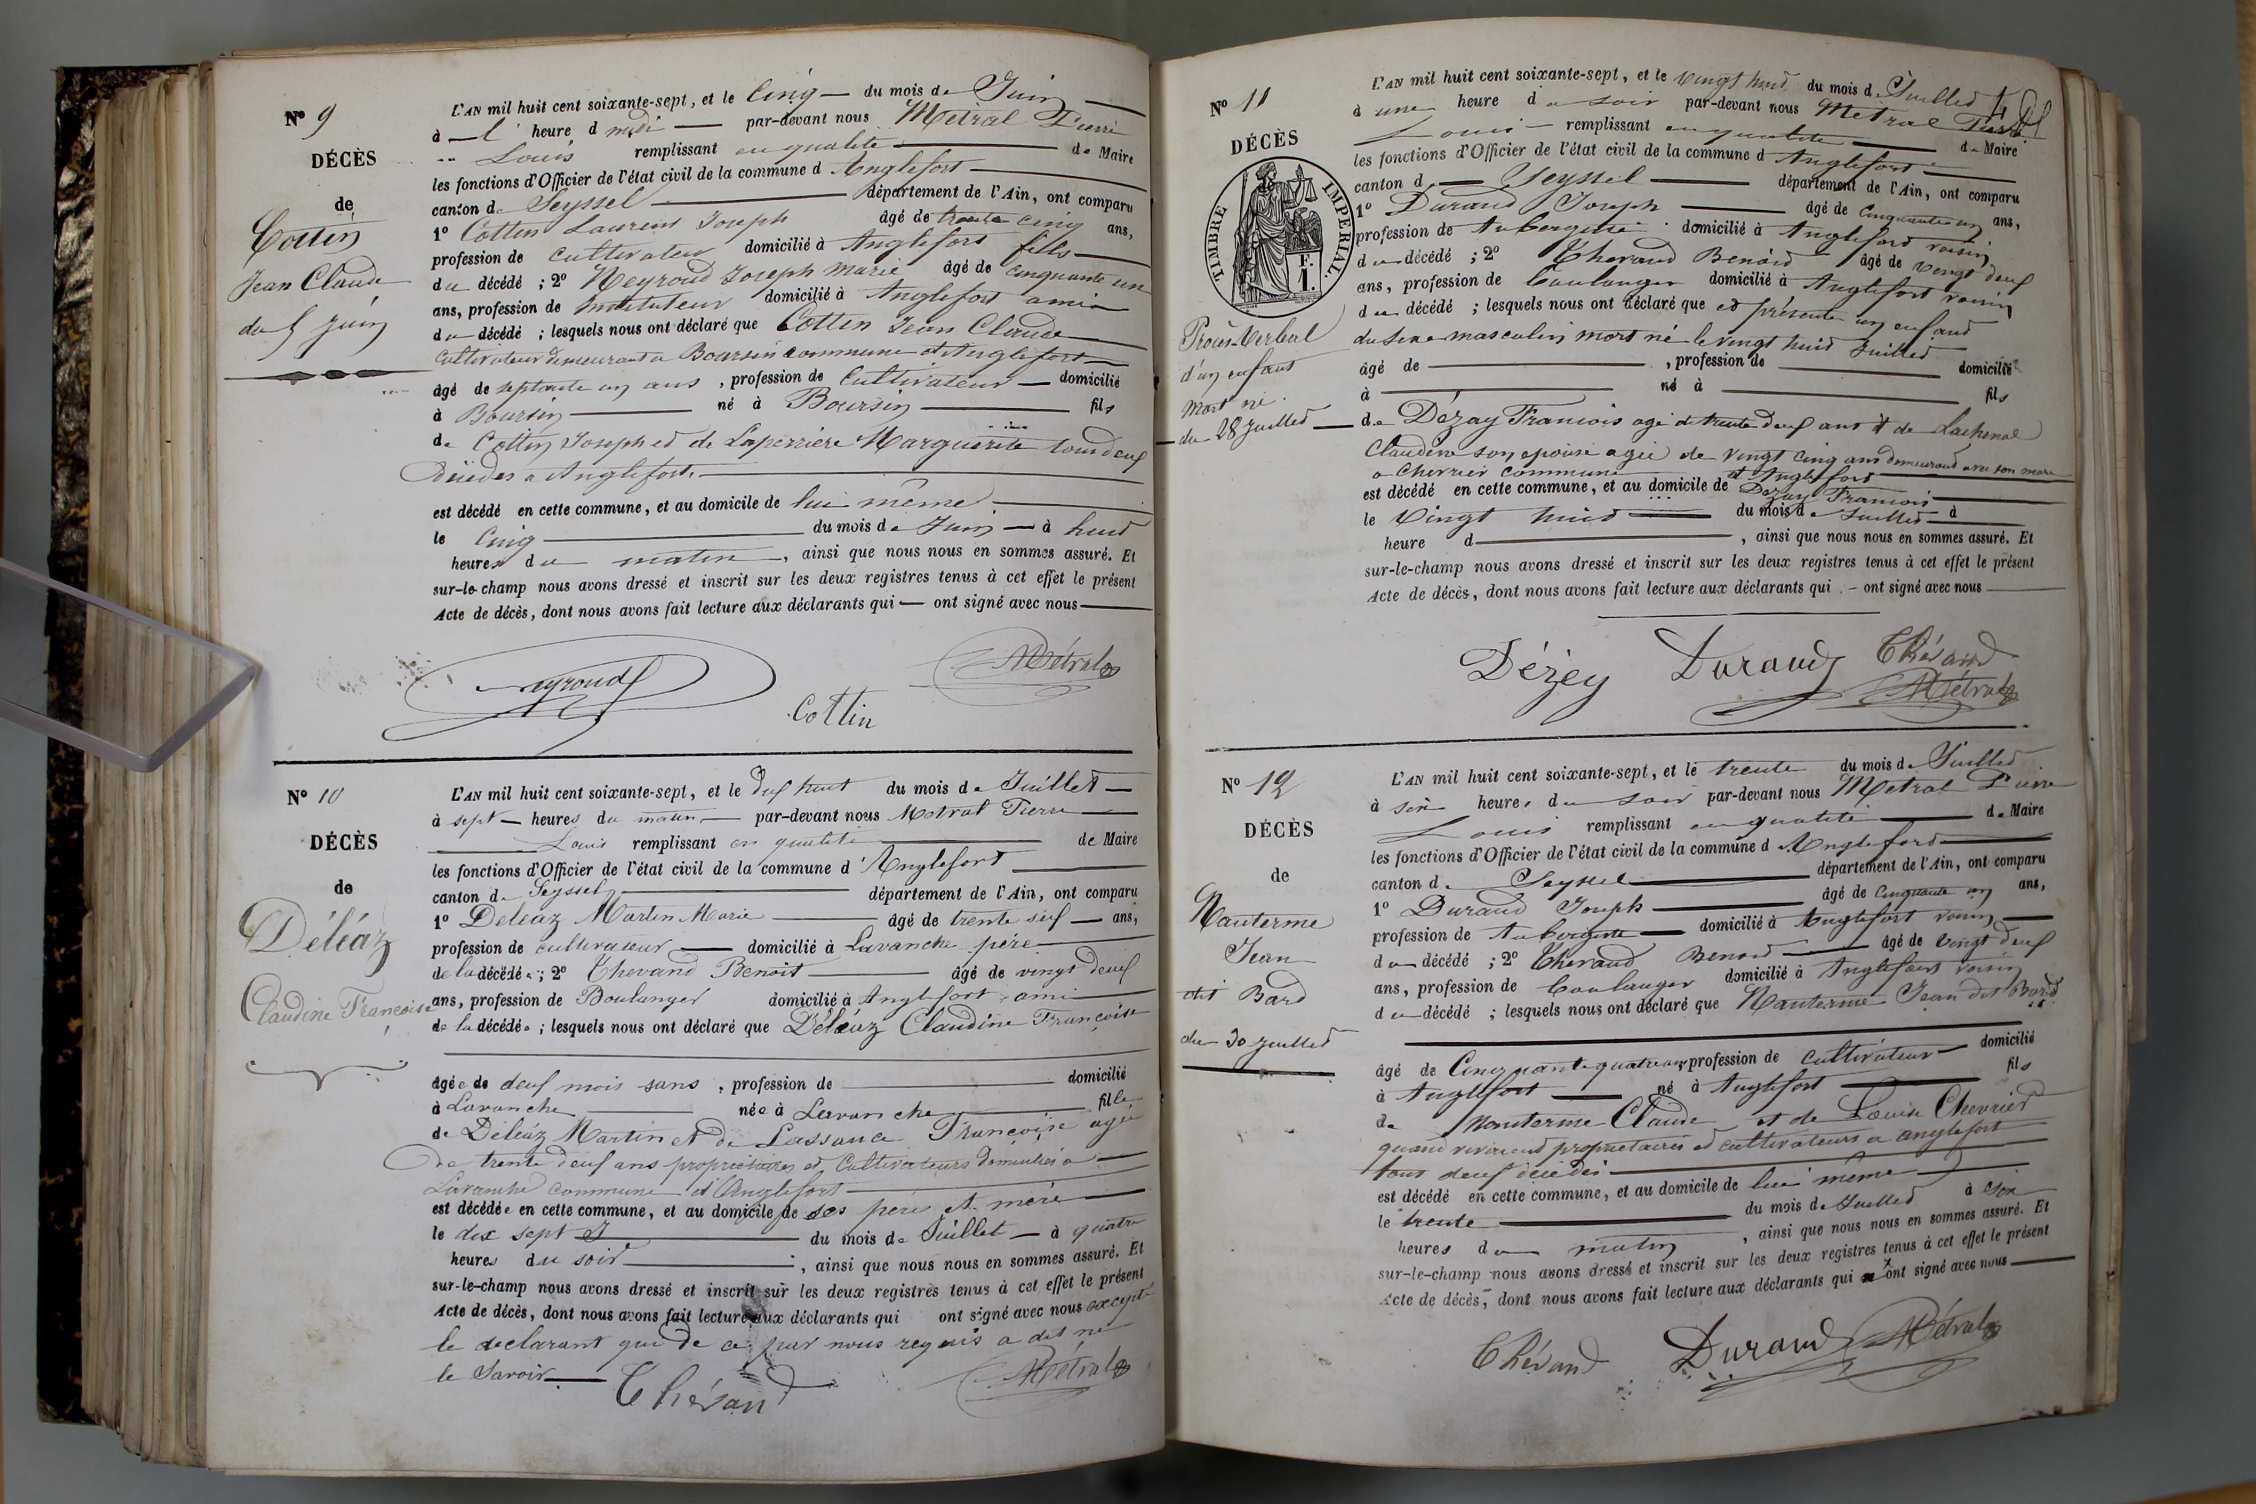 N° 9
DÉCÈS
de
Cottin
Jean Claude
du 5 juin
L'AN mil huit cent soixante-sept, et le Cinq du mois de Juin
à l' heure d midi par-devant nous Métral Pierre
Louis remplissant en qualité de Maire
les fonctions d'Officier de l'état civil de la commune d Anglefort
canton de Seyssel département de l'Ain, ont comparu
1° Cottin Laurent Joseph âgé de trente cinq ans,
profession de cultivateur domicilié à Anglefort fils
du décédé ; 2° Neyroud Joseph Marie âgé de cinquante un
ans, profession de Instituteur domicilié à Anglefort ami
du décédé ; lesquels nous ont déclaré que Cottin Jean Claude
Cultivateur demeurant a Boursin commune d'Anglefort
âgé de septante un ans , profession de Cultivateur domicilié
à Boursin né à Boursin fils
de Cottin Joseph et de Laperrière Marguerite tous deux
Décédés a Anglefort
est décédé en cette commune, et au domicile de lui même
le Cinq du mois de Juin à huit
heures du matin , ainsi que nous nous en sommes assuré. Et
sur-le-champ nous avons dressé et inscrit sur les deux registres tenus à cet effet le présent
Acte de décès, dont nous avons fait lecture aux déclarants qui ont signé avec nous
Neyroud
Cottin
Métral
N° 10
DÉCÈS
de
Déléaz
Claudine Françoise
L'AN mil huit cent soixante-sept, et le dix huit du mois de Juillet
à sept heures du matin par-devant nous Metral Pierre
Louis remplissant en qualité de Maire
les fonctions d'Officier de l'état civil de la commune d'Anglefort
canton de Seyssel département de l'Ain, ont comparu
1° Deleaz Martin Marie âgé de trente six ans,
profession de cultivateur domicilié à Lavanche père
de la décédée ; 2° Thevand Benoit âgé de vingt deux
ans, profession de Boulanger domicilié à Anglefort ami
de la décédée ; lesquels nous ont déclaré que Déléaz Claudine Françoise
âgée de deux mois sans , profession de domicilié
à Lavanche née à Lavanche fille
de Déléaz Martin et de Lassauce Françoise agée
de trente deux ans propriétaires et Cultivateurs domiciliés a
Lavanche commune d'Anglefort
est décédée en cette commune, et au domicile de ses père et mère
le dix sept du mois de Juillet à quatre
heures du soir , ainsi que nous nous en sommes assuré. Et
sur-le-champ nous avons dressé et inscrit sur les deux registres tenus à cet effet le présent
Acte de décès, dont nous avons fait lecture aux déclarants qui ont signé avec nous excepté
le declarant qui de ce par nous requis a dit ne
le Savoir
Thévand
Métral
N° 11
DÉCÈS
TIMBRE IMPÉRIAL.
F.
1.
Procès Verbal
d'un enfant
Mort né
du 28 Juillet
L'AN mil huit cent soixante-sept, et le vingt huit du mois de Juillet
à une heure du soir par-devant nous Metral Pierre
Louis remplissant en qualité de Maire
les fonctions d'Officier de l'état civil de la commune d Anglefort
canton d Seyssel département de l'Ain, ont comparu
1° Durand Joseph âgé de Cinquante un ans,
profession de Aubergiste domicilié à Anglefort voisin
du décédé ; 2° Thevand Benoit âgé de vingt deux
ans, profession de Boulanger domicilié à Anglefort voisin
du décédé ; lesquels nous ont déclaré que et présenté un enfant
du sexe masculin mort né le vingt huit Juillet
âgé de , profession de domicilié
à né à fils
de Dézay Francois agé de trente deux ans et de Lachenal
Claudine son epouse agée de vingt cinq ans demeurant avec son mari
a Chevrier commune d'Anglefort
est décédé en cette commune, et au domicile de Dezay Francois
le Vingt huit du mois de Juillet à
heure d , ainsi que nous nous en sommes assuré. Et
sur-le-champ nous avons dressé et inscrit sur les deux registres tenus à cet effet le présent
Acte de décès, dont nous avons fait lecture aux déclarants qui ont signé avec nous
Dézey Durand Thévand
Métral
N° 12
DÉCÈS
de
Nanterme
Jean
dit Bard
du 30 Juillet
L'AN mil huit cent soixante-sept, et le trente du mois de Juillet
à six heures du soir par-devant nous Metral Pierre
Louis remplissant en qualité de Maire
les fonctions d'Officier de l'état civil de la commune d Anglefort
canton de Seyssel département de l'Ain, ont comparu
1° Durand Joseph âgé de Cinquante un ans,
profession de Aubergiste domicilié à Anglefort voisin
du décédé ; 2° Thevand Benoit âgé de vingt deux
ans, profession de Boulanger domicilié à Anglefort voisin
du décédé ; lesquels nous ont déclaré que Nanterme Jean dit Bard
âgé de Cinquante quatre ans profession de cultivateur domicilié
à Anglefort né à Anglefort fils
de Nanterme Claude et de Louise Chevrier
quand vivaient propriétaires et cultivateurs a anglefort
tous deux décédés
est décédé en cette commune, et au domicile de lui même
le trente du mois de Juillet à six
heures du matin , ainsi que nous nous en sommes assuré. Et
sur-le-champ nous avons dressé et inscrit sur les deux registres tenus à cet effet le présent
Acte de décès, dont nous avons fait lecture aux déclarants qui ont signé avec nous
Thévand Durand Métral